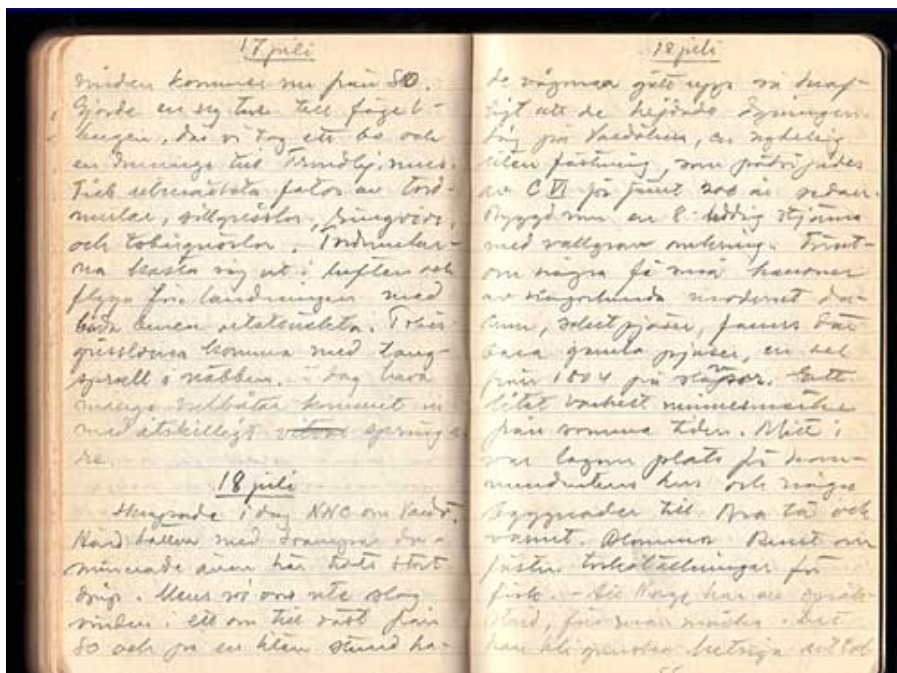 17 juli
vinden kommer nu från SO.
Gjorde en seg tur till fågel-
bergen, där vi tog ett bo och
en till
Fick utmärkta fotor av tord-
mular, sillgrisslor,
och tobisgrisslor. Tordmular-
na kasta sig ut i luften och
flyga före landningen med
båda benen utsträckta. Tobis-
grisslorna komma med tång-
spräll i näbben. I dag hava
många selbåtar kommit in
med åtskilligt springa-
re.
18 juli
Skrapade i dag NNO om Vardö.
Hård botten med
även här trots stort
djup. Mens vi voro ute slog
vinden i ett om till väst från
SO och på en liten stund ha-
18 juli
de vågorna gått upp så kraf-
tigt att de hejdade dyningen.
Såg på Vardöhus, en nybelig
liten fästning, som
av C VI för jämt 200 år sedan.
Byggd som en 8-uddig stjärna
med vallgrav omkring. Förut-
om några få små kanoner
av någorlunda modernt da-
tum, fanns där
bara gamla pjäser, en del
från 1804 på släpor. Ett
litet vackert minnesmärke
från samma tiden. Mitt i
var lagom plats för kom-
mendantens hus och några
byggnader till. Bra tå och
vamet. Blommor. Runt om
fästen torkställningar för
fisk. - Att Norge har en språk-
strid, märka. Det
kan bli ganska